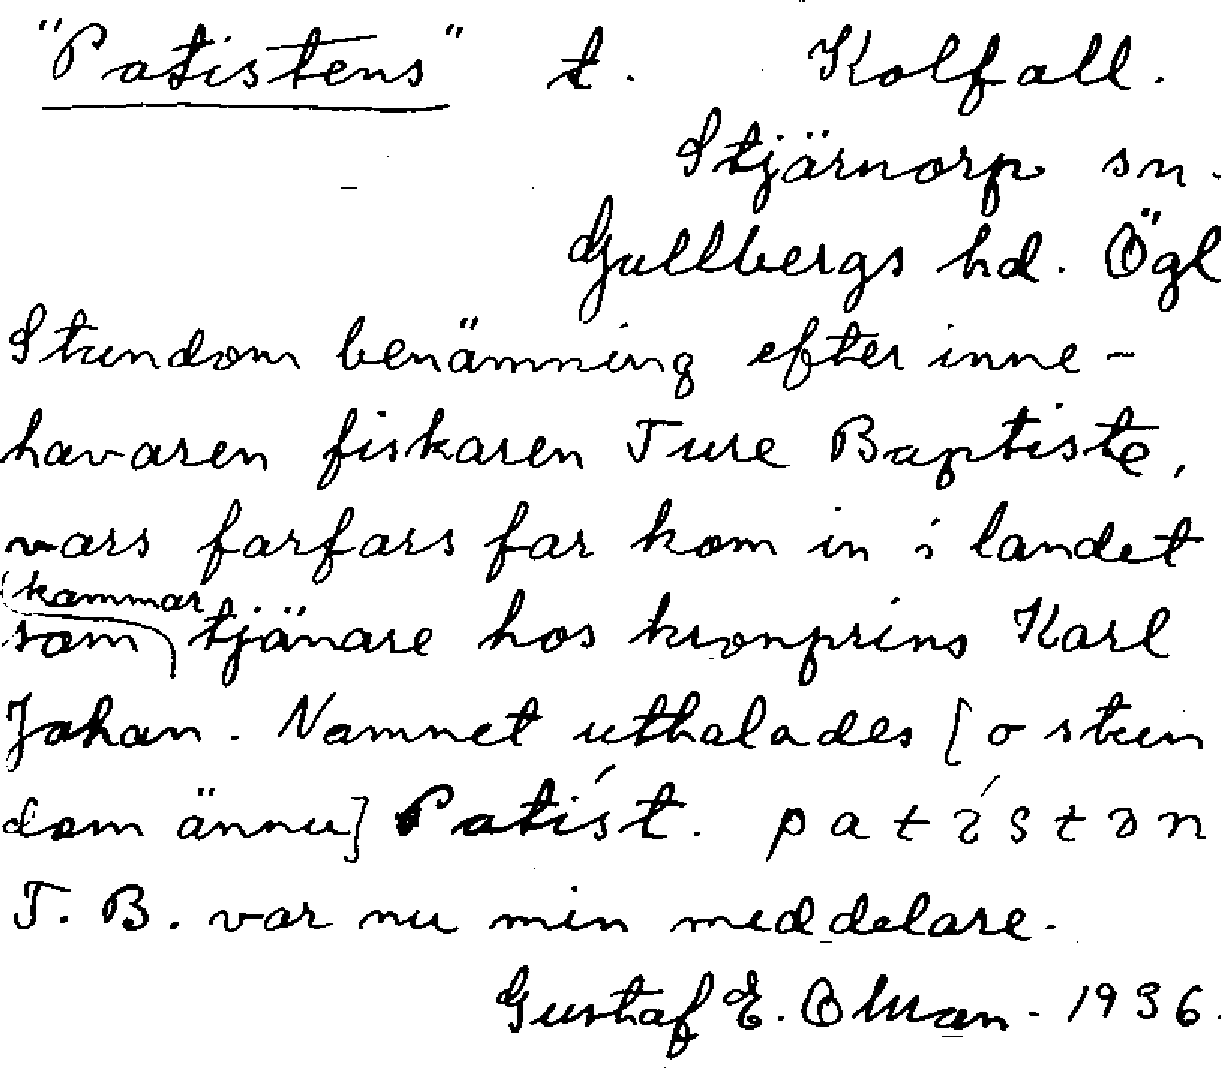 "Patistens" t. Kolfall.
Stjärnorp sn.
Gullbergs hd. Ögl
Stundom benämning efter inne-
havaren fiskaren Ture Baptiste,
vars farfars far kom in i landet
kammar
som tjänare hos kronprins Karl
Johan. Namnet uthalades [o stun
dom ännu] Patíst. patístən
T. B. var nu min meddelare.
Gustaf E. Olman - 1936.